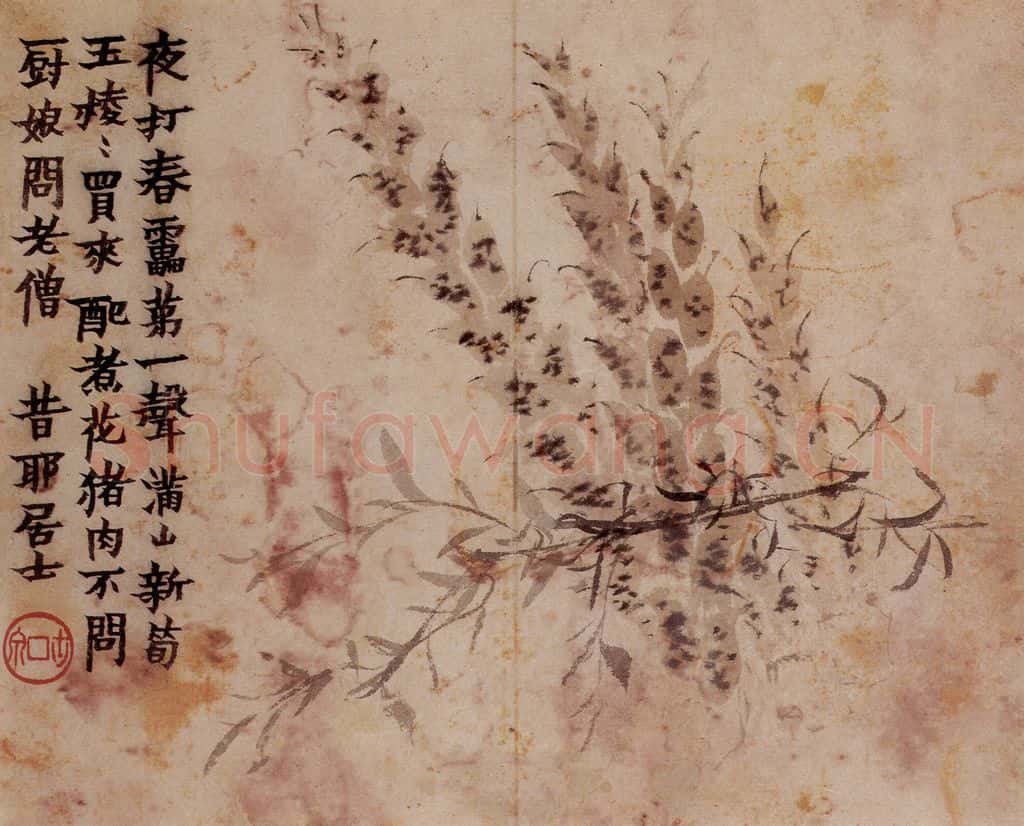 夜打春靁苐一聲滿山新筍
玉棱〻買來配煮花猪肉不問
厨娘問老僧 昔耶居士
Shufawang.CN